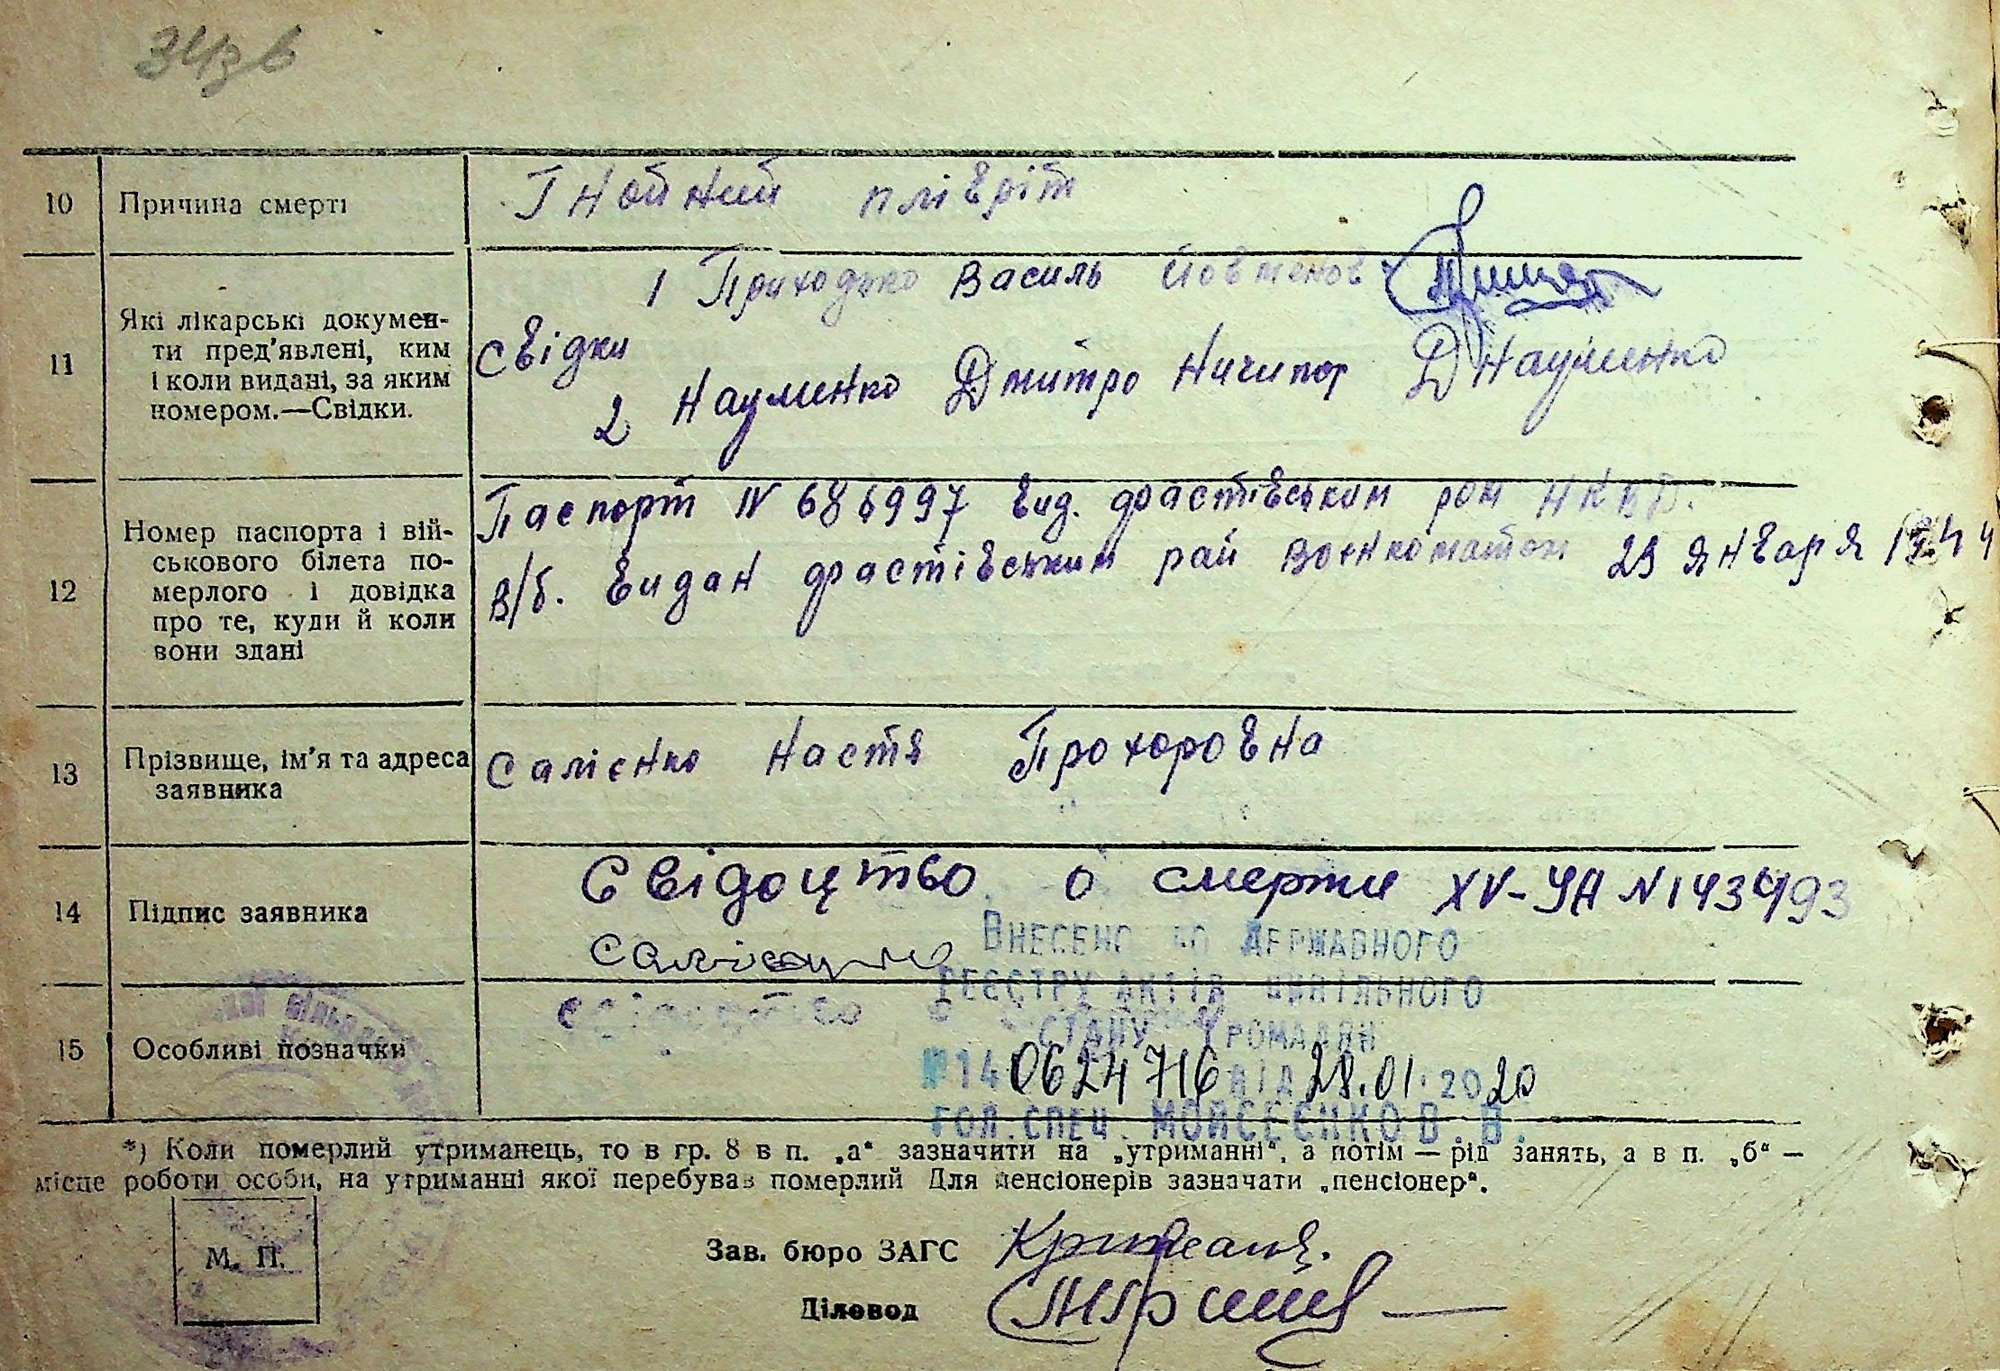 10 Причина смерті Гнойний плівріт
11 Які лікарські докумен-
ти пред'явлені, ким
і коли видані, за яким
номером.—Свідки.
1 Приходько Василь
Свідки
2 Науменко Дмитро Ничипор ДНауменко
12 Номер паспорта і вій-
ськового білета по-
мерлого і довідка
про те, куди й коли
вони здані
Паспорт IV 686997 вид. фастівським ром НКВД.
в/б. видан фастівським рай воєнкоматом 29 января 1944
13 Прізвище, ім'я та адреса
заявника
Салієнко Настя Прохоровна
14 Підпис заявника
Свідоцтво о смерти XV-УА N 143493
15 Особливі позначки
свідоцтво о
Внесено до Державного
реєстру актів цивільного
стану громадян
№14 0624716 від 28.01.2020
гол. спец. Мойсеєнко В. В.
*) Коли померлий утриманець, то в гр. 8 в п. „а“ зазначити на „утриманні“, а потім — рід занять, а в п. „б“ —
місце роботи особи, на утриманні якої перебував померлий Для пенсіонерів зазначати „пенсіонер“.
М. П.
Зав. бюро ЗАГС
Діловод